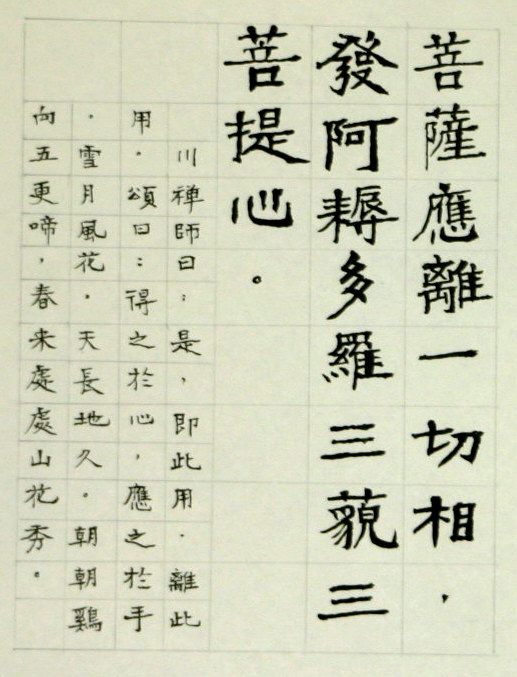 菩薩應離一切相，
發阿耨多羅三藐三
菩提心。
川禅師曰：是，即此用．離此
用．頌曰：得之於心，應之於手
．雪月風花，天長地久。朝朝鷄
向五更啼，春来處處山花秀。